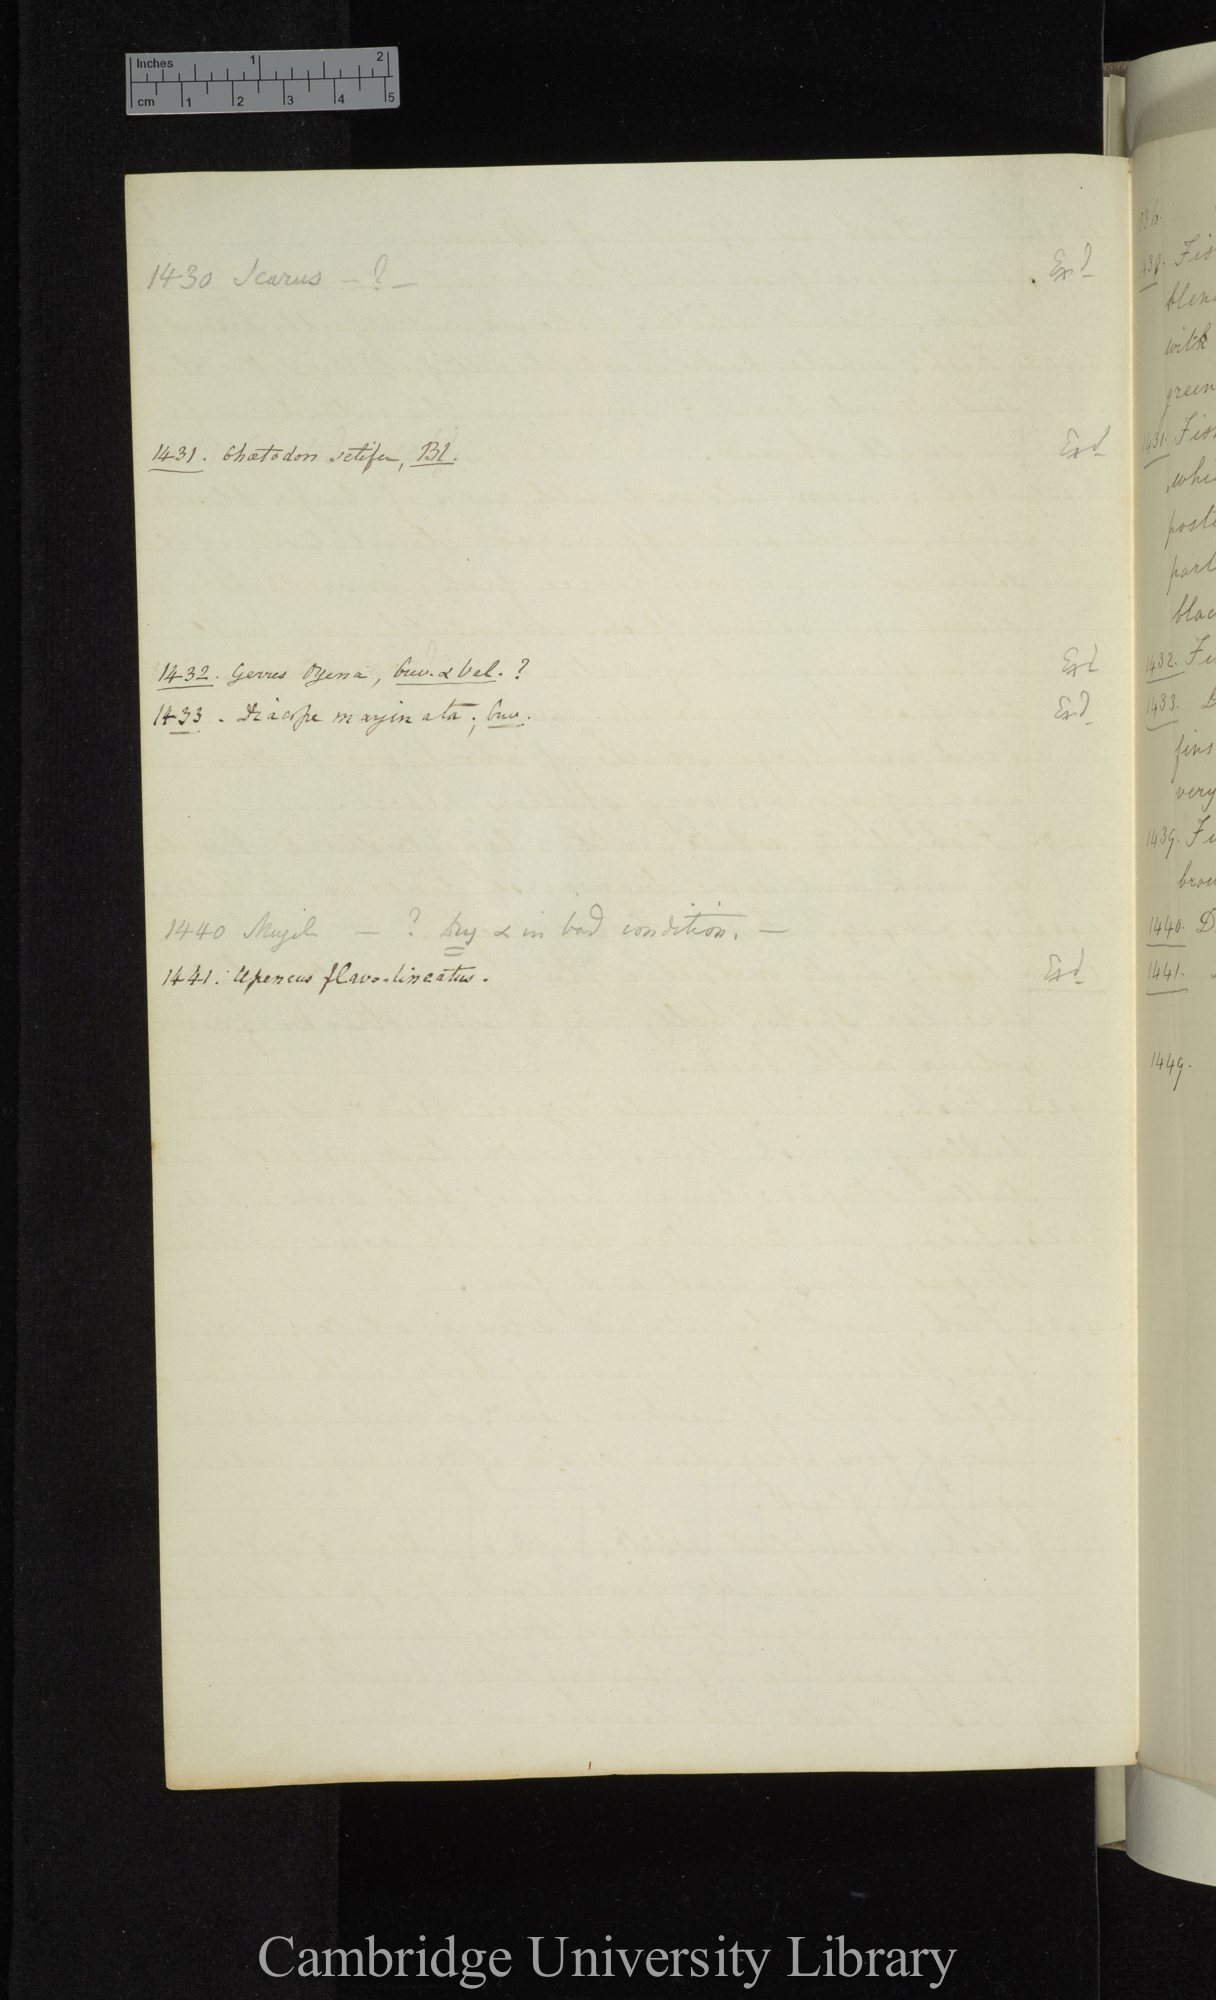 Inches 1 2
cm 1 2 3 4 5
1430 Scarus - ? - Exd
1431. Chætodon setifer, Bl. Exd
1432. Gerres Oyena, Cuv. & Val. ? Exd
1433. Diacope marginata, Cuv. Exd
1440 Mugil - ? Dry & in bad condition. -
1441. Upeneus flavo-lineatus. Exd
with
green
1431. Fish
whi
poste
part
blac
1432. Fi
1433. D
fins
very
1439. Fi
brow
1440. D
1441.
1449.
Cambridge University Library